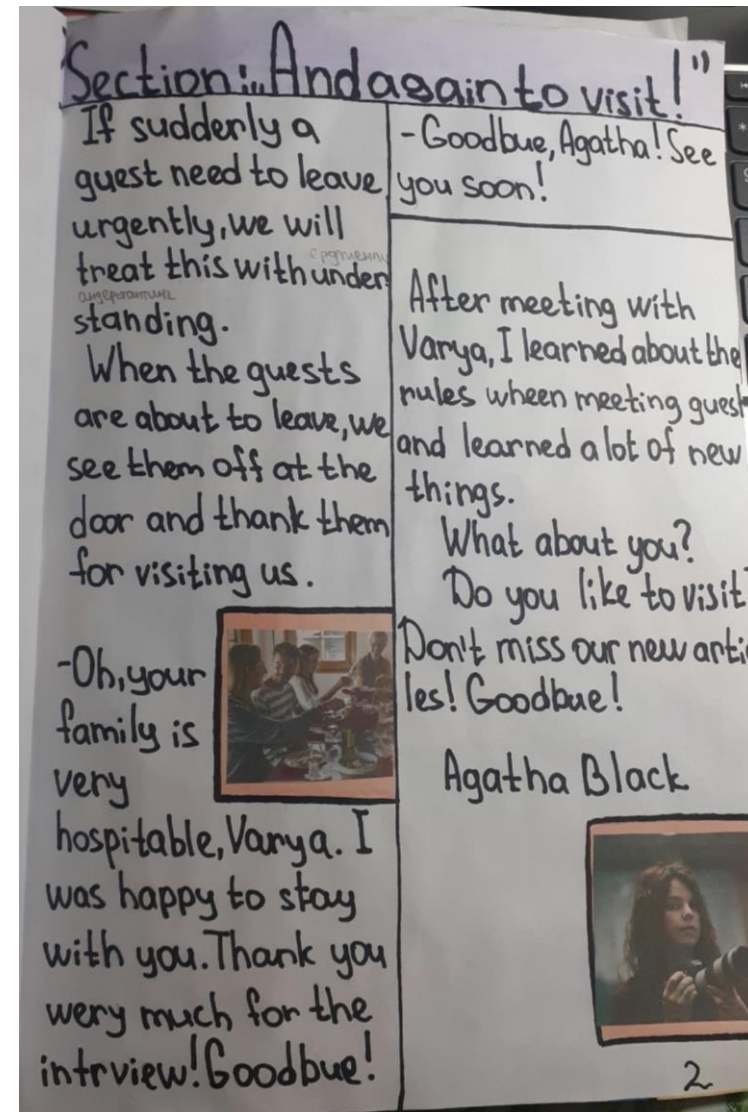 "Section: „And again to visit!"
If sudderly a
guest need to leave
urgently, we will
treat this with under
standing.
When the guests
are about to leave, we
see them off at the
door and thank them
for visiting us.
-Oh, your
family is
very
hospitable, Varya. I
was happy to stay
with you. Thank you
wery much for the
intrview! Goodbue!
-Goodbue, Agatha! See
you soon!
After meeting with
Varya, I learned about the
rules wheen meeting guest
and learned a lot of new
things.
What about you?
Do you like to visit
Don't miss our new artic
les! Goodbue!
Agatha Black
2